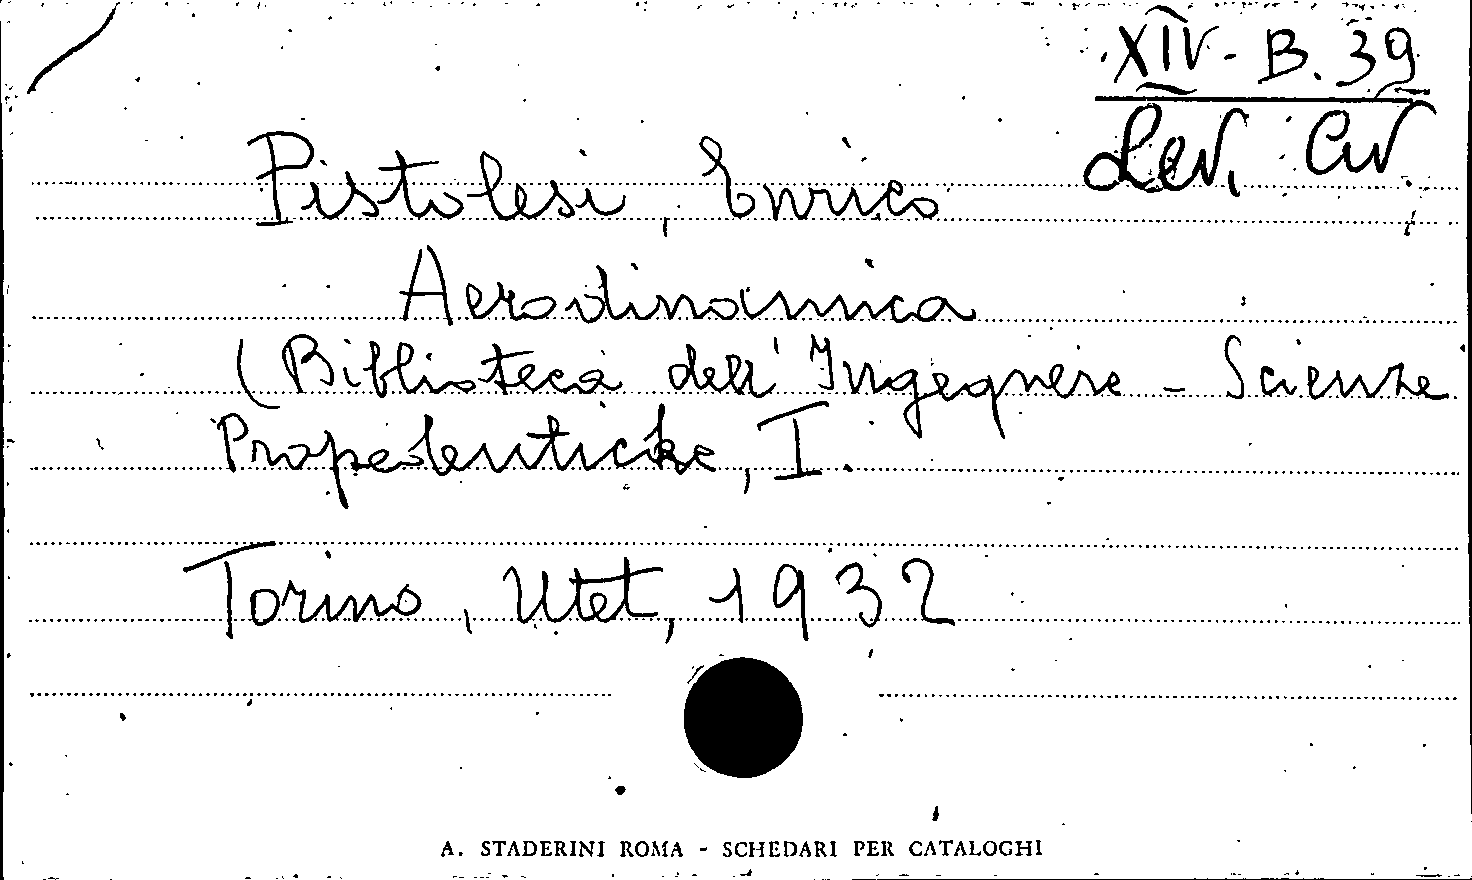 XIV - B. 39
Lev. Civ.
Pistolesi, Enrico
Aerodinamica
(Biblioteca dell'Ingegnere - Scienze
Propedeutiche, I.
Torino, Utet, 1932
A. STADERINI ROMA - SCHEDARI PER CATALOGHI